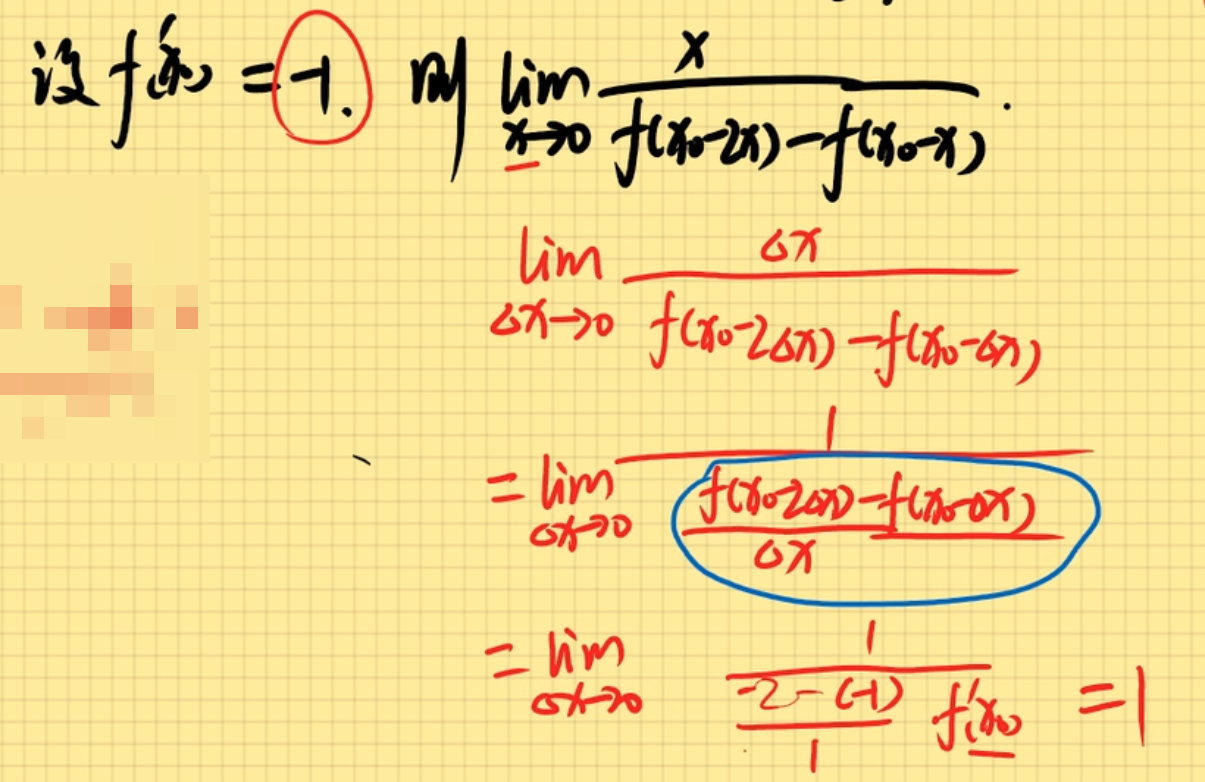 设 f'(x₀) = -1. 则 lim x→0 x / f(x₀-2x)-f(x₀-x) .
lim Δx→0 Δx / f(x₀-2Δx)-f(x₀-Δx)
= lim Δx→0 1 / f(x₀-2Δx)-f(x₀-Δx) / Δx
= lim Δx→0 1 / -2-(-1) / 1 f'(x₀) = 1